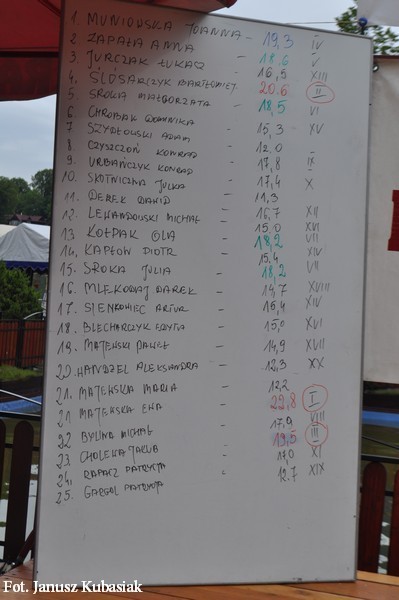 1. MUNIOWSKA JOANNA - 19,3 IV
2 ZAPAŁA ANNA - 18,6 V
3. JURCZAK ŁUKASZ - 16,5 XIII
4. ŚLÓSARCZYK BARTŁOMIEJ - 20,6 II
5 SROKA MAŁGORZATA - 18,5 VI
6 CHROBAK DOMINIKA - 15,3 XV
7 SZYDŁOWSKI ADAM - 12,0
8 CZYSZCZOŃ KONRAD - 17,8 IX
9. URBAŃCZYK KONRAD - 17,4 X
10. SKOTNICZNA JULKA - 11,3
11. DEREK DAWID - 16,7 XII
12. LEWANDOWSKI MICHAŁ - 15,0 XVI
13 KOŁPAK OLA - 18,2 VII
14. KAPŁON PIOTR - 15,4 XIV
15. SROKA JULIA - 18,2 VII
16. MLEKODAJ DAREK - 14,7 XVIII
17. SIENKOWIEC ARTUR - 15,4 XIV
18. BLECHARCZYK EDYTA - 15,0 XVI
19. MAJEWSKI PAWEŁ - 14,9 XVII
20. HANDZEL ALEKSANDRA - 12,3 XX
21. MAJEWSKA MARIA - 12,2
21 MAJEWSKA EWA - 22,8 I
22 BYLINA MICHAŁ - 17,9 VIII
23. CHOLEWA JAKUB - 19,5 III
24. RAPACZ PATRYCJA - 17,0 XI
25. GARGOL PATRYCJA - 12,7 XIX
Fot. Janusz Kubasiak